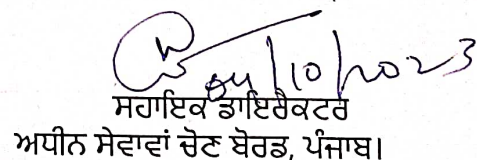 04/10/2023
ਸਹਾਇਕ ਡਾਇਰੈਕਟਰ
ਅਧੀਨ ਸੇਵਾਵਾਂ ਚੋਣ ਬੋਰਡ, ਪੰਜਾਬ।